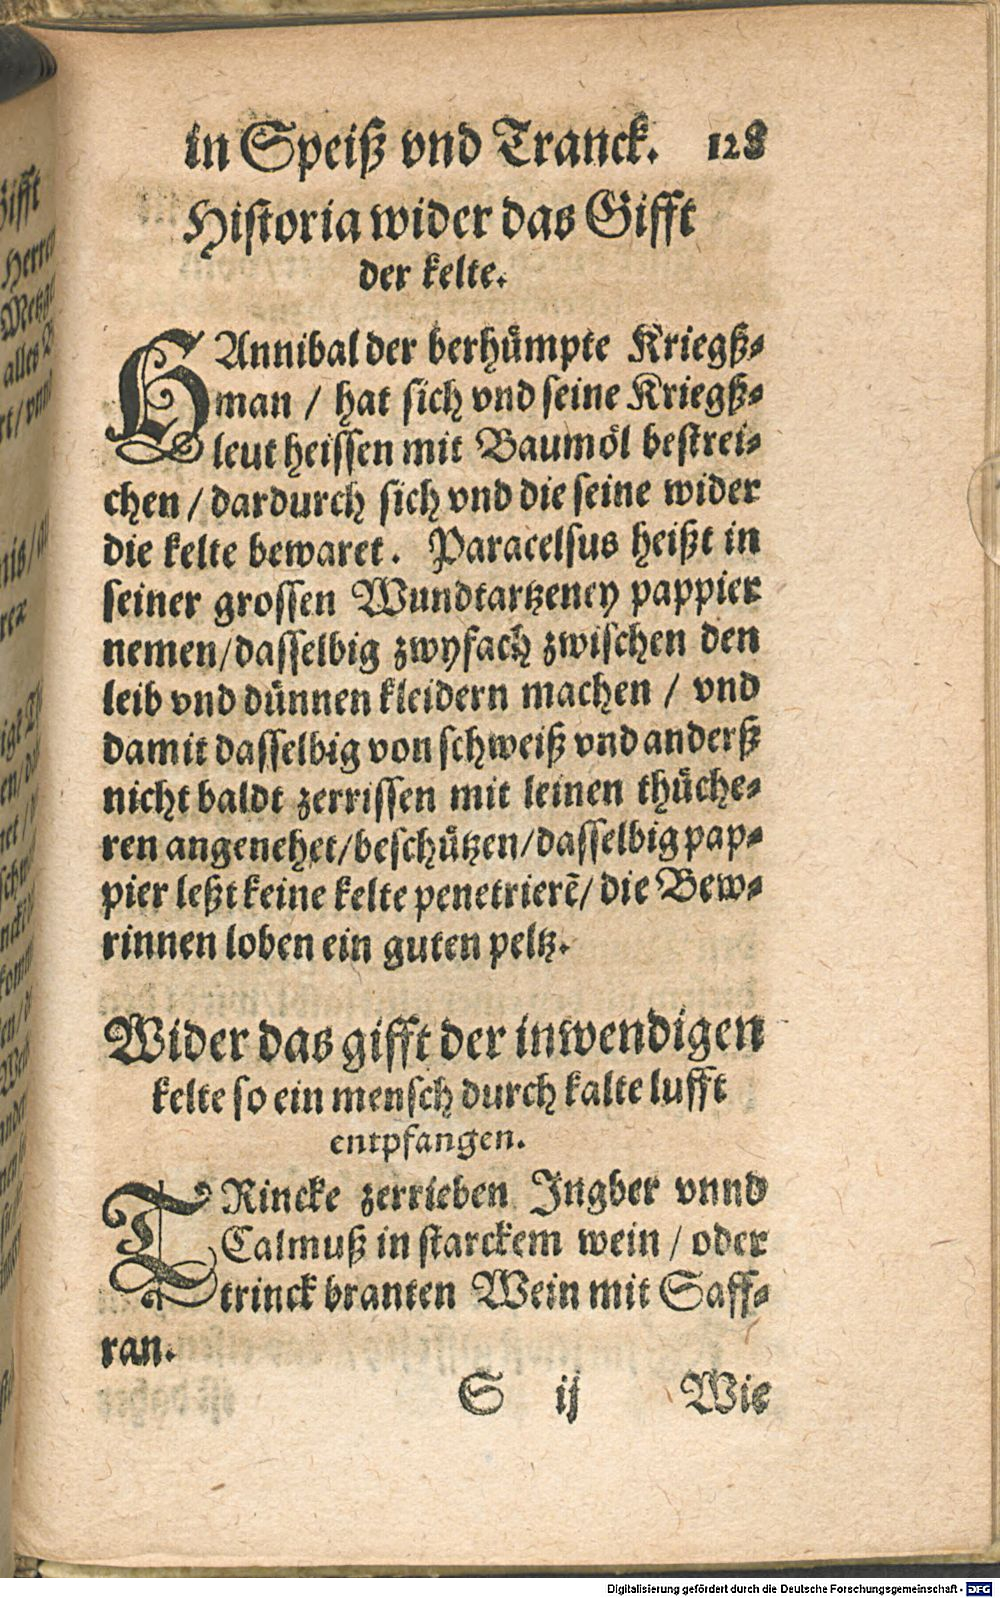 in Speiß vnd Tranck. 128
Historia wider das Gifft
der kelte.
HAnnibal der berhuͤmpte Kriegß⸗
man / hat sich vnd seine Kriegß⸗
leut heissen mit Baumoͤl bestrei⸗
chen / dardurch sich vnd die seine wider
die kelte bewaret. Paracelsus heißt in
seiner grossen Wundtartzeney pappier
nemen/dasselbig zwyfach zwischen den
leib vnd duͤnnen kleidern machen / vnd
damit dasselbig von schweiß vnd anderß
nicht baldt zerrissen mit leinen thuͤche⸗
ren angenehet/beschuͤtzen/dasselbig pap⸗
pier leßt keine kelte penetrierẽ/ die Bew⸗
rinnen loben ein guten peltz.
Wider das gifft der inwendigen
kelte so ein mensch durch kalte lufft
entpfangen.
TRincke zerrieben Ingber vnnd
Calmuß in starckem wein / oder
trinck branten Wein mit Saff⸗
ran.
S ij Wie
Digitalisierung gefördert durch die Deutsche Forschungsgemeinschaft - DFG